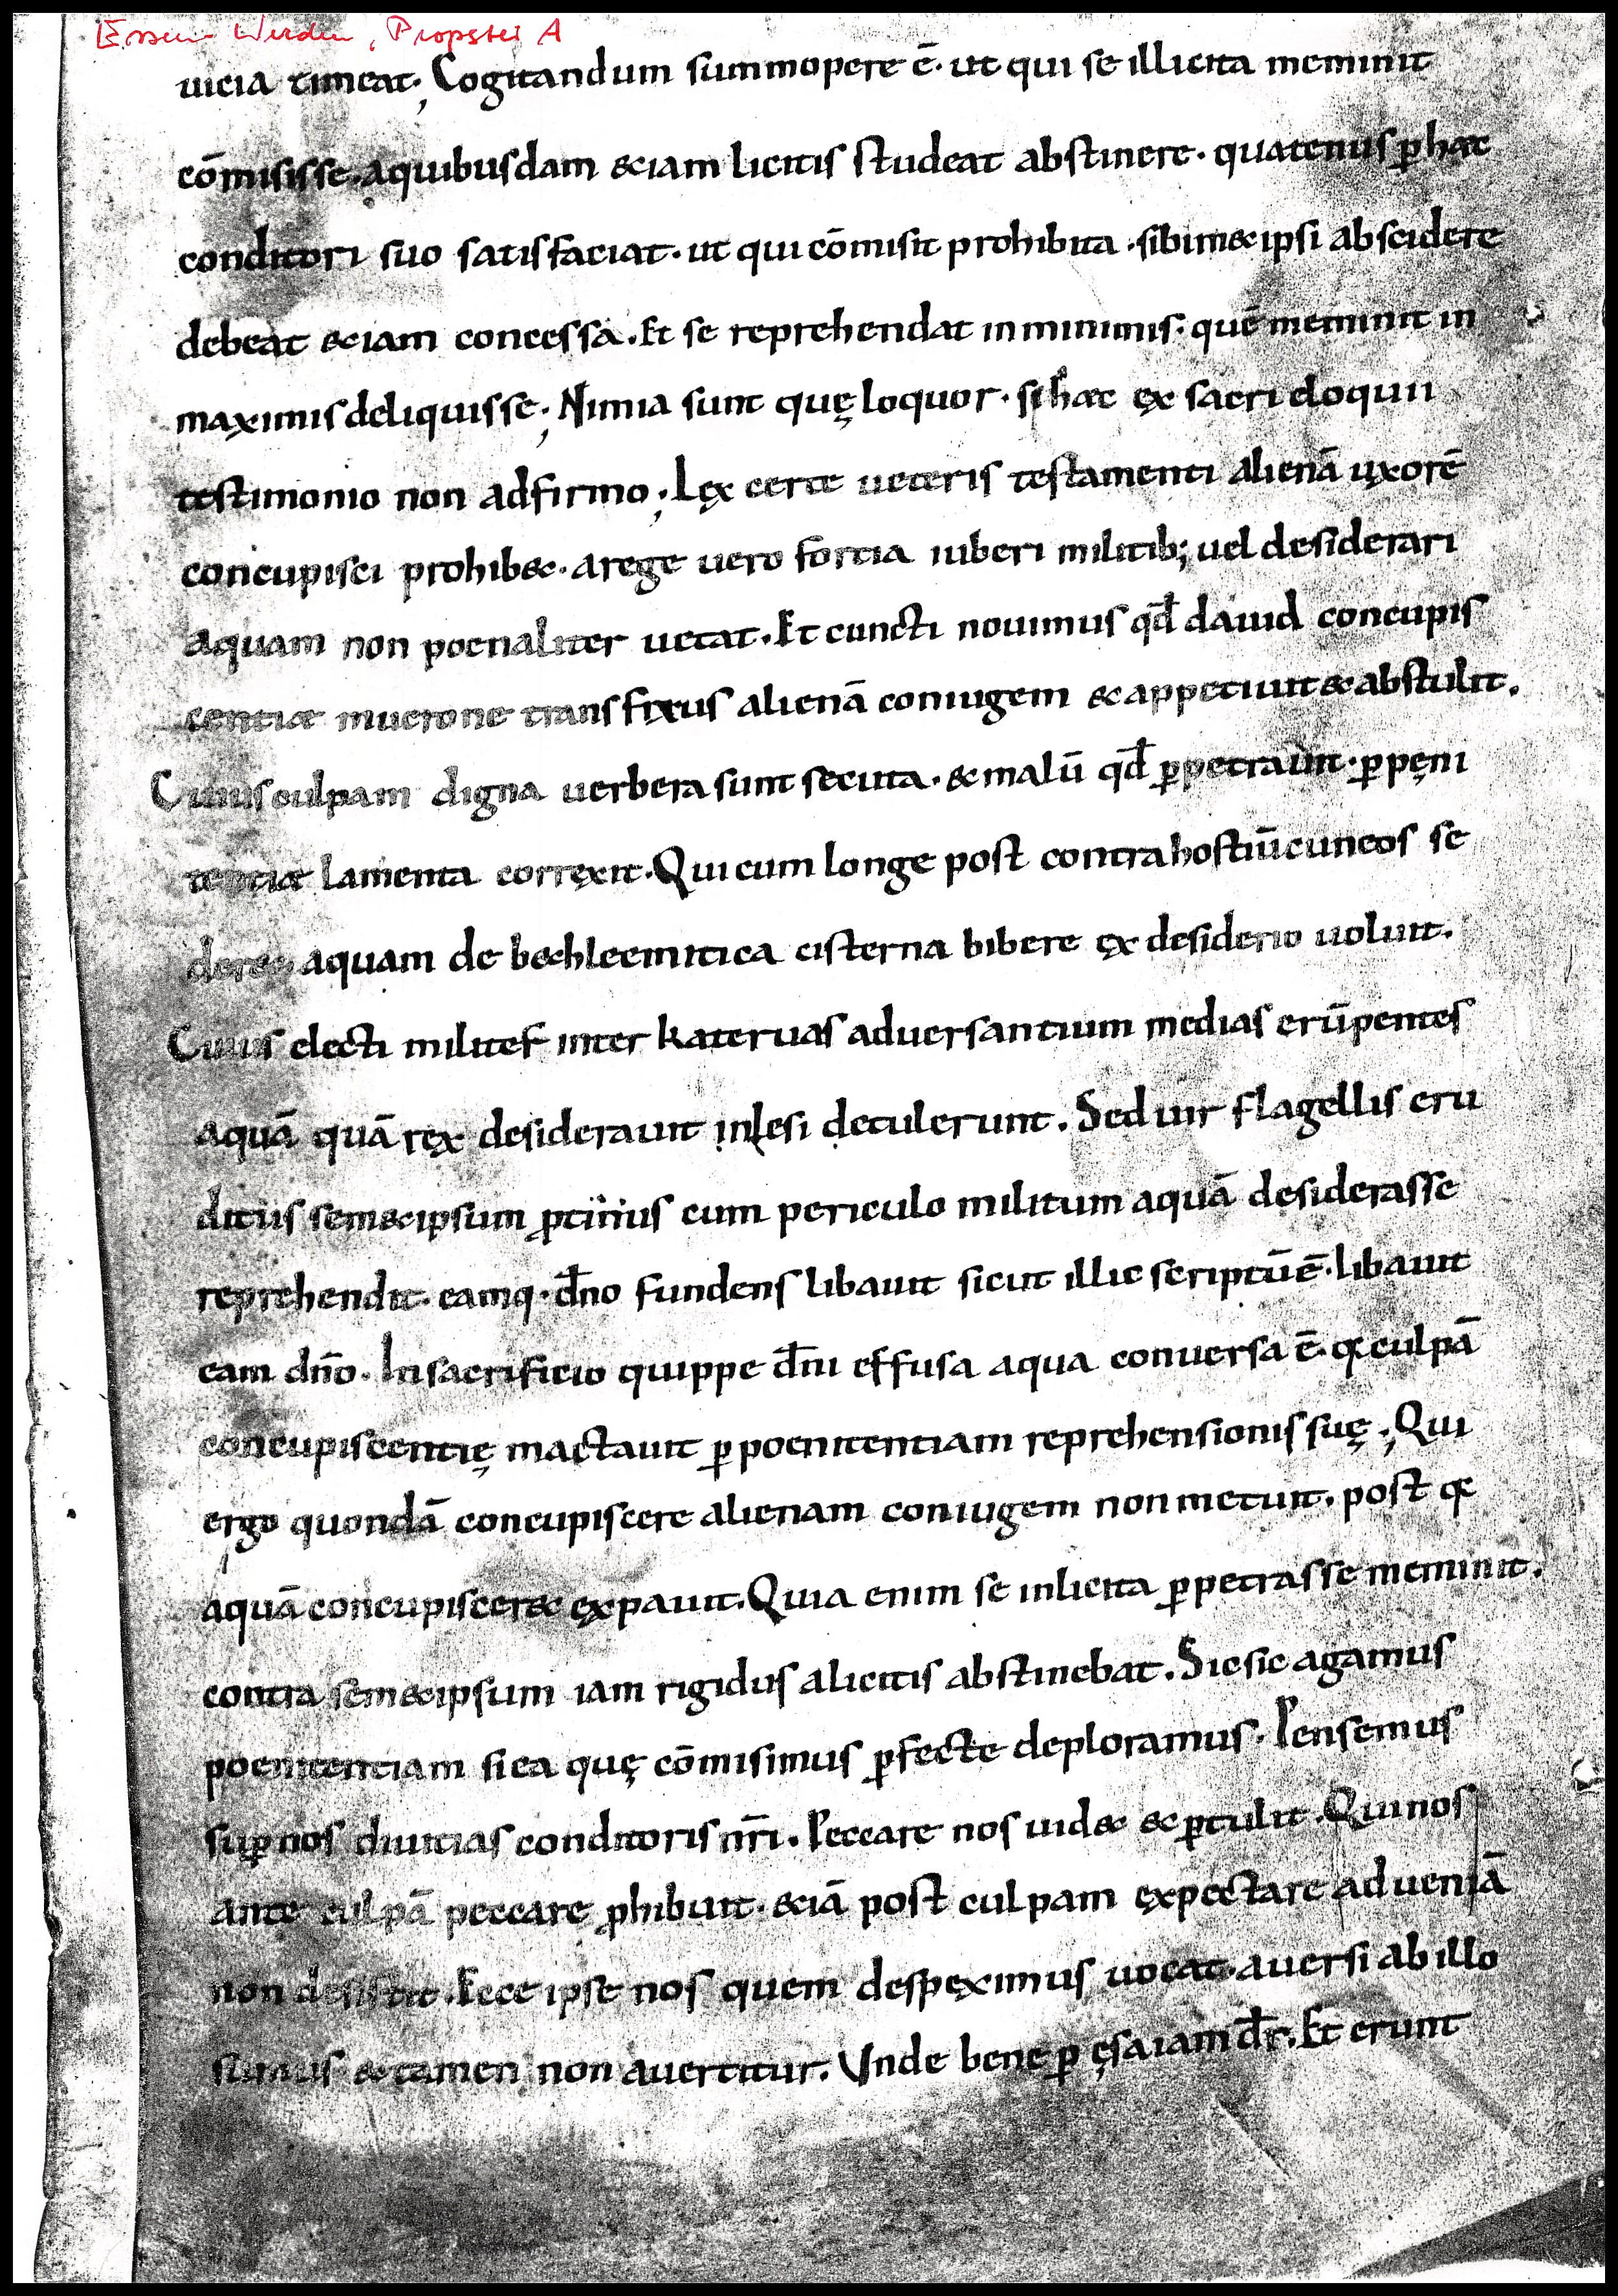 Essen-Werden, Propstei A
uicia timeat; Cogitandum summopere ē· ut qui se illicita meminit
cōmisisse· aquibusdam &iam licitis studeat abstinere· quatenus ꝑ hæc
conditori suo satisfaciat· ut qui cōmisit prohibita· sibim&ipsi abscidere
debeat &iam concessa. Et se reprehendat in minimis· quē meminit in
maximis deliquisse; Nimia sunt quę loquor· si hæc ex sacri eloquii
testimonio non adfirmo; Lex certe ueteris testamenti alienā uxorē
concupisci prohib&· arege uero fortia iuberi militib; uel desiderari
aquam non poenaliter uetat. Et cuncti nouimus qđ dauid concupis
centiæ mucrone transfixus alienā coniugem & appetiuit & abstulit.
Cuius culpam digna uerbera sunt secuta· & malū qđ ꝑpetrauit· ꝑ pęni
tentiæ lamenta correxit. Qui cum longe post contra hostiū cuneos se
deret· aquam de b&hleemitica cisterna bibere ex desiderio uoluit.
Cuius electi milites inter kateruas aduersantium medias erūpentes
aquā quā rex desiderauit inlesi detulerunt. Sed uir flagellis eru
ditus sem&ipsum ꝓtinus cum periculo militum aquā desiderasse
reprehendit· eamq· dn̄o fundens libauit sicut illic scriptū ē· libauit
eam dn̄o. In sacrificio quippe dn̄i effusa aqua conuersa ē· qꝛ culpā
concupiscentię mactauit ꝑ poenitentiam reprehensionis suę; Qui
ergo quondā concupiscere alienam coniugem non metuit. post qꝛ
aquā concupiscer& expauit. Quia enim se inlicita ꝑpetrasse meminit.
contra sem&ipsum iam rigidus alicitis abstinebat. Sic sic agamus
poenitentiam si ea quę cōmisimus ꝑfecte deploramus. Pensemus
suꝑ nos diuitias conditoris nr̄i. Peccare nos uid& & ꝑtulit. Qui nos
ante culpā peccare ꝓhibuit· &iā post culpam expectare ad ueniā
non desistit. Ecce ipse nos quem despeximus uocat· auersi ab illo
sumus & tamen non auertitur. Unde bene ꝑ ęsaiam dr̄. Et erunt